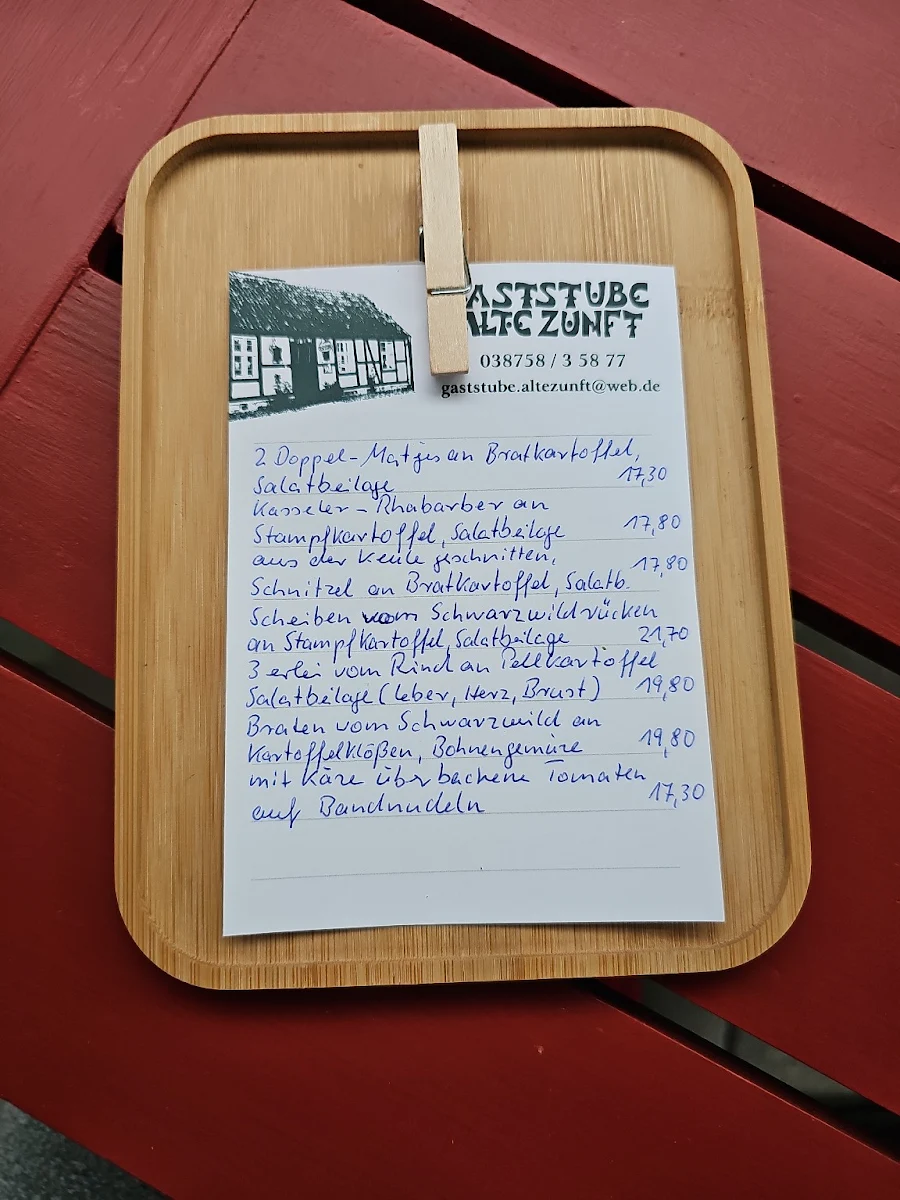 GASTSTUBE
ALTE ZUNFT
038758 / 3 58 77
gaststube.altezunft@web.de
2 Doppel-Matjes an Bratkartoffel,
Salatbeilage 17,30
Kasseler-Rhabarber an
Stampfkartoffel, Salatbeilage 17,80
aus der Keule geschnitten,
Schnitzel an Bratkartoffel, Salatb. 17,80
Scheiben vom Schwarzwildrücken
an Stampfkartoffel, Salatbeilage 21,70
3 erlei vom Rind an Pellkartoffel
Salatbeilage (Leber, Herz, Brust) 19,80
Braten vom Schwarzwild an
Kartoffelklößen, Bohnengemüse 19,80
mit Käse überbackene Tomaten
auf Bandnudeln 17,30